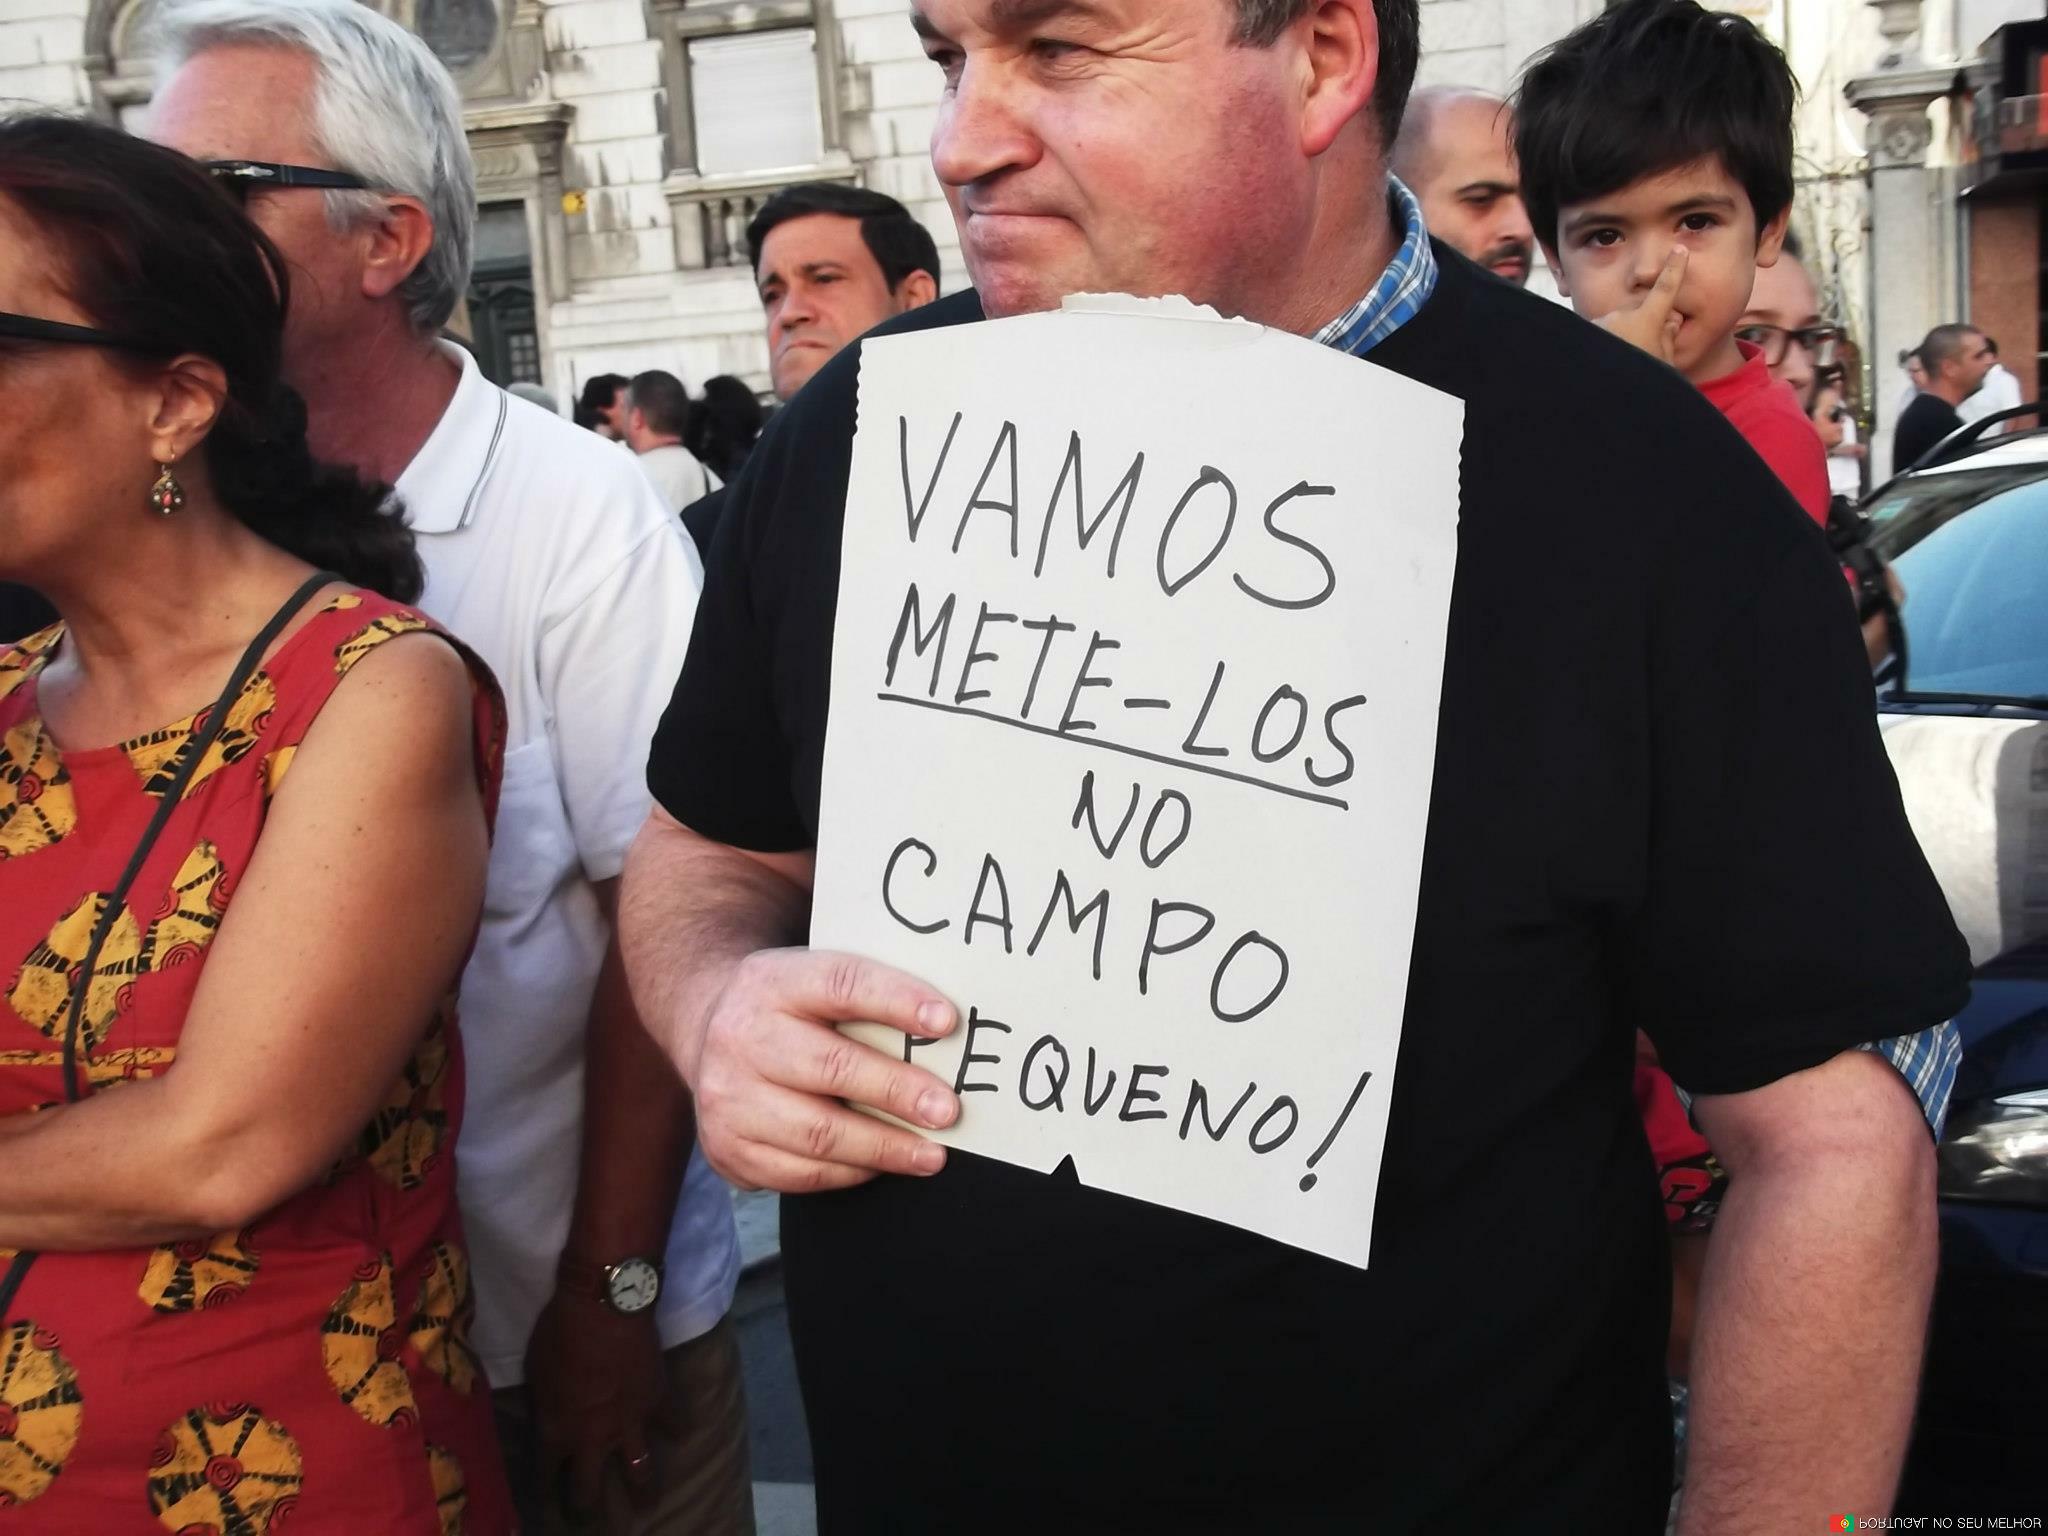 VAMOS
METE-LOS
NO
CAMPO
PEQUENO!
PORTUGAL NO SEU MELHOR